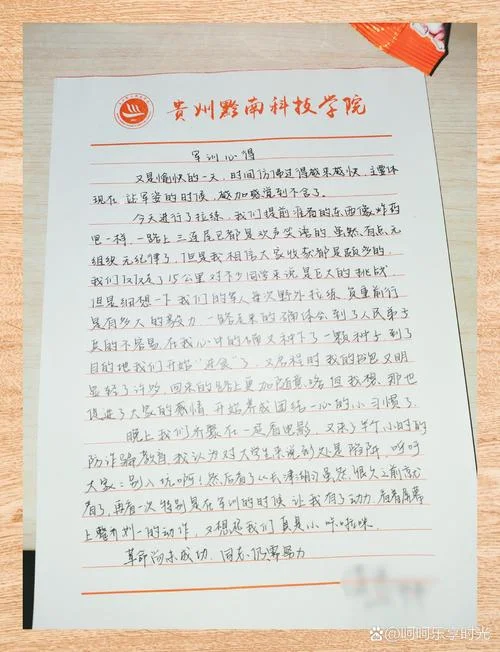 贵州黔南科技学院
军训心得
又是愉快的一天，时间仿佛过得越来越快，主要体
现在 站军姿的时候，越加感觉到不舍了。
今天进行了拉练，我们提前准备的东西像炸药
包一样，一路上三连尾巴都是欢声笑语的，虽然有点无
组织无纪律了，但是我相信大家收获都是颇多的，
我们仅仅走了15公里对不少同学来说是巨大的挑战，
但是细想一下我们的军人每次野外拉练，负重前行
是有多大的毅力，一路走来的确体会到了人民子弟
兵的不容易，在我心中的确又种下了一颗种子，到了
目的地我们开始"进食"了，又启程时我的包又明
显轻了许多，回来的路上更加随意 但我想，那也
促进了大家的感情，开始养成团结一心的小习惯了。
晚上我们齐聚在一起看电影，又来了半个小时的
防诈骗教育，我认为对大学生来说到处是陷阱，呼吁
大家：别入坑啊！然后看了《长津湖》虽然很久之前就
看了，再看一次特别是在军训的时候，让我有了动力，后看屏幕
上整齐划一的动作，又想起我们真是小咔啦咪。
革命尚未成功，同志仍需努力
@呵呵乐享时光